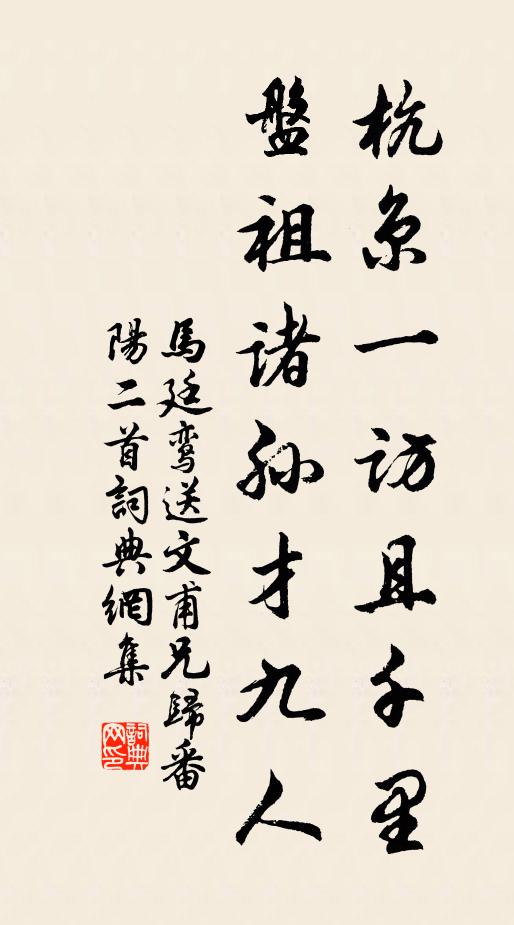 杭京一访且千里
盤祖诸孙才九人
馬廷鸾送文甫兄歸番
陽二首詞典網集
詞典网印